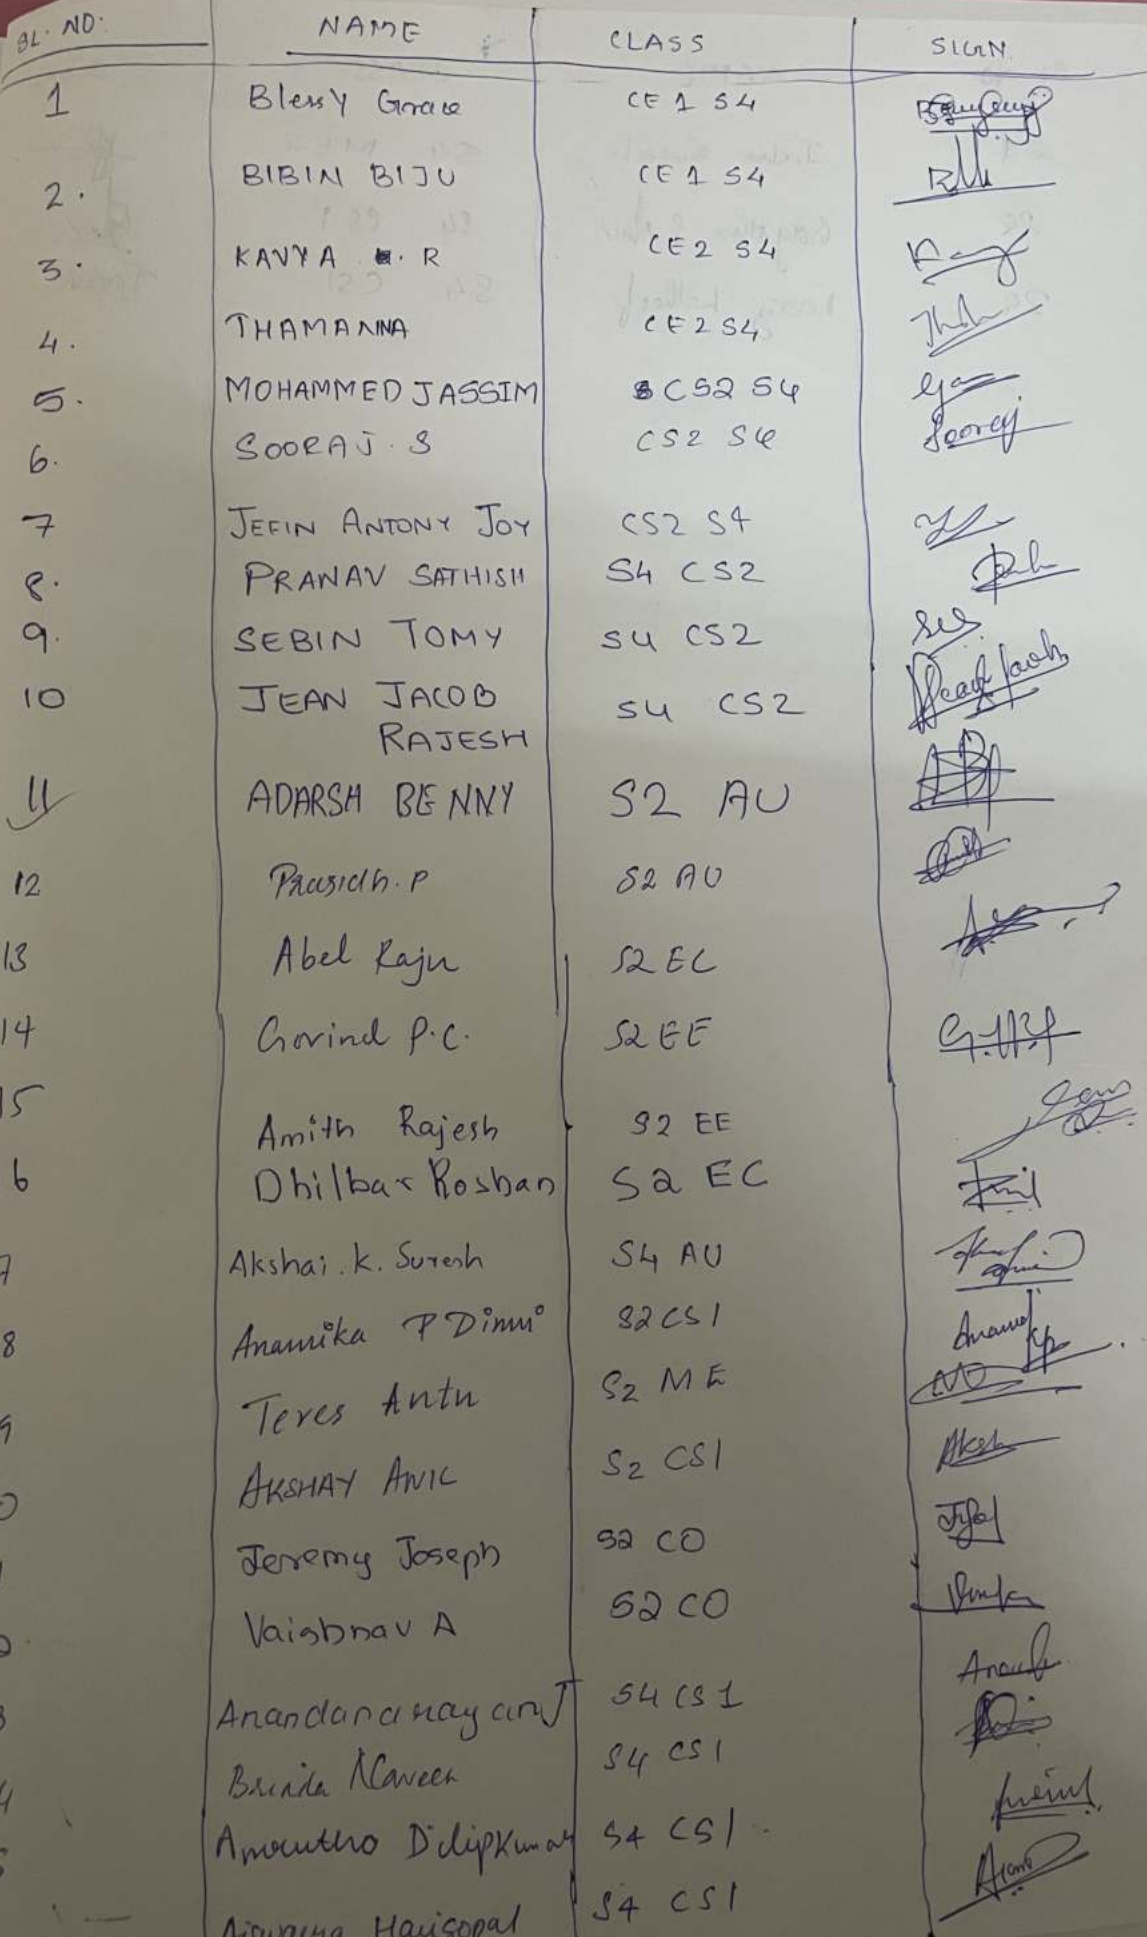 SL. NO. NAME CLASS SIGN
1 Blessy Grace CE 1 S4
2. BIBIN BIJU CE 1 S4
3. KAVYA . R CE 2 S4
4. THAMANNA CE 2 S4
5. MOHAMMED JASSIM CS2 S4
6. SOORAJ. S CS2 S4 Sooraj
7 JEFIN ANTONY JOY CS2 S4
8. PRANAV SATHISH S4 CS2
9. SEBIN TOMY S4 CS2
10 JEAN JACOB S4 CS2
RAJESH
11 ADARSH BENNY S2 AU
12 Prasidh. P S2 AU
13 Abel Raju S2 EC
14 Govind P.C. S2 EE
15 Amith Rajesh S2 EE
6 Dhilbar Roshan S2 EC
7 Akshai. K. Suresh S4 AU
8 Anamika P Dinni S2 CS1
9 Teres Antu S2 ME
0 AKSHAY ANIL S2 CS1
Jeremy Joseph S2 CO
Vaishnav A S2 CO
3 Anandanarayan J S4 CS1
4 Brinda Naveen S4 CS1
Amrutha Dilipkumar S4 CS1
Harigopal S4 CS1